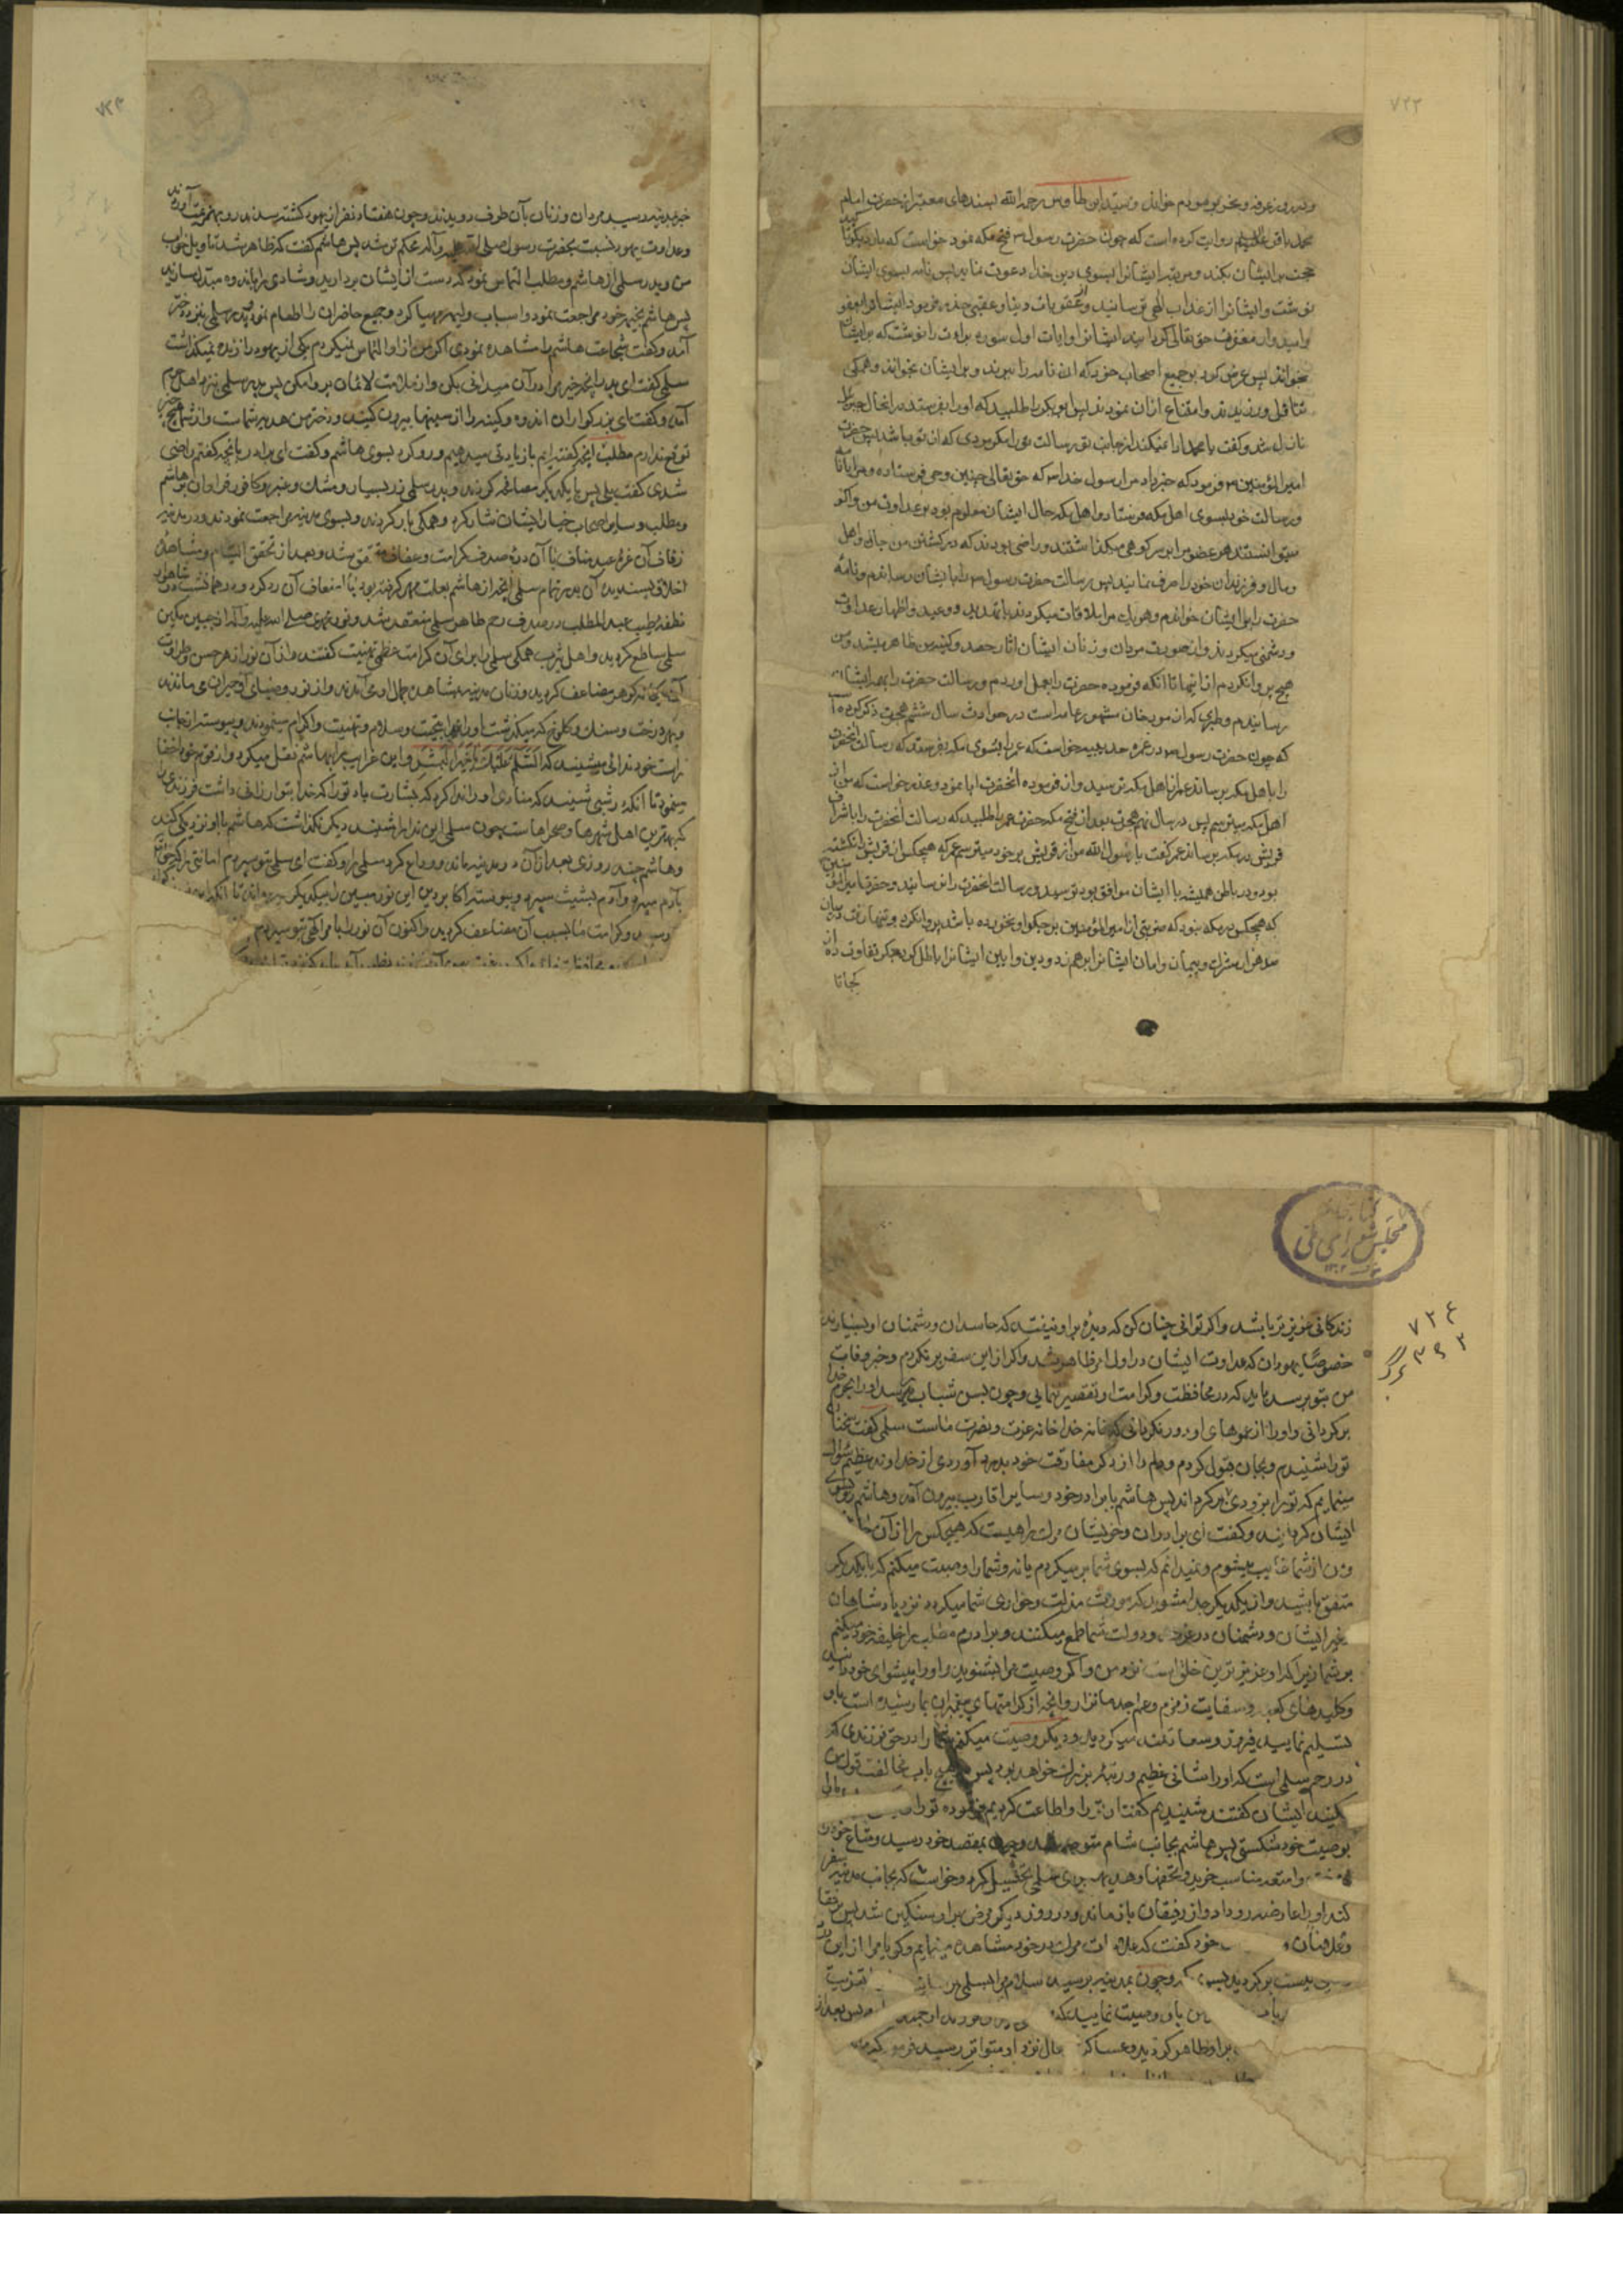 ۷۲۲
و در روز عرفه و نحر بر مردم خواند و سید ابن طاوس رحمه الله بسندهای معتبر از حضرت امام
محمد باقر علیه السلام روایت کرده است که چون حضرت رسول ص فتح مکه نمود خواست که بار دیگر
حجت بر ایشان بکند و مرتبه ایشانرا بسوی دین خدا دعوت نماید پس نامه بسوی ایشان
نوشت و ایشانرا از عذاب الهی ترسانید و از عقوبات دنیا و عقبی حذر فرمود و ایشانرا بعفو
و امیدوار مغفرت حق تعالی گردانید ایشانرا و آیات اول سوره براءت را نوشت که بر ایشان
بخوانند پس عرض کرد بر جمیع اصحاب خود که آن نامه را ببرند و بر ایشان بخوانند و همگی
تثاقل ورزیدند و امتناع از آن نمودند پس ابوبکر را طلبید که او را بفرستد در آنحال جبرئیل
نازل شد و گفت یا محمد ادا نمیکند از جانب تو رسالت تو را مگر مردی که از تو باشد پس حضرت
امیر المؤمنین ع فرمود که خبر داد مرا رسول خدا ص که حق تعالی چنین وحی فرستاده و مرا با نامه
و رسالت خود بسوی اهل مکه فرستاد و اهل مکه حال ایشان معلوم بود در عداوت من و اگر
میتوانستند هر عضو مرا بر سر کوهی میگذاشتند و راضی بودند که در کشتن من جان و اهل
و مال و فرزندان خود را صرف نمایند پس رسالت حضرت رسول ص را بایشان رساندم و نامه
حضرت را بر ایشان خواندم و هر یک مرا ملاقات میکردند با تهدید و وعید و اظهار عداوت
و دشمنی میکردند و از صورت مردان و زنان ایشان آثار حقد و کینه من ظاهر میشد و من
هیچ پروا نکردم از اینها تا آنکه فرموده حضرت را بعمل آوردم و رسالت حضرت را بهمه ایشان
رساندم و طبری که از مورخان مشهور عامه است در حوادث سال ششم هجرت ذکر کرده
که چون حضرت رسول ص در غزوه حدیبیه خواست که عمر را بسوی مکه بفرستد که رسالت آنحضرت
را باهل مکه برساند عمر از اهل مکه ترسید و از فرموده آنحضرت ابا نمود و عذر خواست که من از
اهل مکه میترسم پس در سال نهم هجرت بعد از فتح مکه حضرت عمر را طلبید که رسالت آنحضرت را باشراف
قریش در مکه برساند عمر گفت یا رسول الله من از قریش بر خود میترسم
بود و در باطن همیشه با ایشان موافق بود ترسید رسالت آنحضرت را نرسانید و حضرت امیر المؤمنین
که هیچکس در مکه نبود که ضربتی از امیر المؤمنین بر جگر او نخورده باشد پروا نکرد و تنها رفت و میان
صد هزار مشرک و پیمان و امان ایشانرا بر هم زد و دین و آیین ایشانرا باطل کرد ببین تفاوت ره از
کجا تا
۷۲۳
خبر بمدینه رسید مردان و زنان بآن طرف دویدند و چون هفتاد نفر از یهود کشته شدند رو بهزیمت آوردند
و عداوت یهود نسبت بحضرت رسول صلی الله علیه و آله محکم تر شد پس هاشم گفت که ظاهر شد تاویل خواب
من و پدر سلمی از هاشم و مطلب التماس نمود که دست از ایشان بردارید و شادی را باندوه مبدل مسازید
پس هاشم بخیمه خود مراجعت نمود و اسباب ولیمه مهیا کرد و جمیع حاضران را اطعام نمود پدر سلمی بنزد دختر
آمد و گفت شجاعت هاشم را مشاهده نمودی اگر من از او التماس نمیکردم یکی از یهود را زنده نمیگذاشت
سلمی گفت ای پدر آنچه خیر مرا در آن میدانی بکن و از ملامت لائمان پروا مکن پس پدر سلمی بنزد اهل حرم
آمد و گفت ای بزرگواران اندوه و کینه را از سینها بیرون کنید و دختر من هدیه شماست و از شما هیچ چیز
توقع ندارم مطلب گفت آنچه گفته ایم با زیادتی میدهیم و رو کرد بسوی هاشم و گفت ای برادر بآنچه گفتم راضی
شدی گفت بلی پس با یکدیگر مصافحه کردند و پدر سلمی زر بسیار و مشک و عنبر و کافور فراوان بر هاشم
و مطلب و سایر اصحاب خیار ایشان نثار کرد و همگی بار کردند و بسوی مدینه مراجعت نمودند و در مدینه
زفاف آن غره عبد مناف با آن دره صدف کرامت و عفاف متحقق شد و بعد از تحقق التیام و مشاهده
اخلاق پسندیده آن بدر تمام سلمی آنچه از هاشم بعلت مهر گرفته بود با اضعاف آن رد کرد و در همان شب شاهوار
نطفه طیبه عبد المطلب در صدف رحم طاهر سلمی منعقد شد و نور محمدی صلی الله علیه و آله از جبین مبین
سلمی ساطع گردید و اهل یثرب همگی سلمی را برای آن کرامت عظمی تهنیت گفتند و از آن نور از هر حسن و طراوت
آن یگانه گوهر مضاعف گردید و زنان مدینه بمشاهده جمال او می آمدند و از نور و ضیای او حیران می ماندند
و بهر درخت و سنگ و کلوخی که میگذشت او را بتحیت و سلام و تهنیت و اکرام مینمودند و پیوسته از جانب
راست خود ندائی میشنید که السلام علیک یا خیر البشر و این غرایب را بهاشم نقل میکرد و از قوم خود اخفا
مینمود تا آنکه در شبی شنید که منادی او را ندا کرد که بشارت باد تو را که خدا بتو ارزانی داشت فرزندی
که بهترین اهل شهرها و صحراهاست چون سلمی این ندا را شنید دیگر نگذاشت که هاشم با او نزدیکی کند
و هاشم چند روزی بعد از آن در مدینه ماند و وداع کرد سلمی را و گفت ای سلمی بتو سپردم امانتی را که
بآدم سپرد و آدم بشیث سپرد و پیوسته اکابر دین این نور مبین را بیکدیگر سپرده اند تا آنکه
رسید و کرامت ما بسبب آن مضاعف گردید و اکنون آن نور را بامر الهی بتو سپردم
کتابخانه
مجلس شورای ملی
۷۲۴
۳۶۲ برگ
زندگانی عزیزتر باشد و اگر توانی چنان کن که دیده بر او نیفتد که حاسدان و دشمنان او بسیارند
خصوصا یهودان که عداوت ایشان در اول امر ظاهر شد و اگر از این سفر بر نگردم و خبر وفات
من بتو برسد باید که در محافظت و کرامت او تقصیر ننمایی و چون بسن شباب برسد او را بحرم خدا
برگردانی و او را از عموهای او دور نگردانی که خانه خدا خانه عزت و نصرت ماست سلمی گفت سخنان
تو را شنیدم و بجان قبول کردم و دلم را از ذکر مفارقت خود بدرد آوردی از خداوند عظیم سؤال
مینمایم که تو را بزودی بمن برگرداند پس هاشم با برادر خود و سایر اقارب بیرون آمد و هاشم رو بسوی
ایشان گردانید و گفت ای برادران و خویشان مرگ راهیست که هیچکس را از آن
و من از شما غایب میشوم و نمیدانم که بسوی شما بر میگردم یا نه و شما را وصیت میکنم که با یکدیگر
متفق باشید و از یکدیگر جدا مشوید که مورث مذلت و خواری شما میگردد نزد پادشاهان
و غیر ایشان و دشمنان در عزت و دولت شما طمع میکنند و برادرم مطلب را خلیفه خود میکنم
بر شما زیرا که او عزیزترین خلق است نزد من و اگر وصیت مرا بشنوید او را پیشوای خود دانید
و کلیدهای کعبه و سقایت زمزم و علم جد ما نزار و آنچه از کرامتهای پیغمبران بما رسیده است باو
تسلیم نمایید فیروز و سعادتمند میگردید و دیگر وصیت میکنم شما را در حق فرزندی که
در رحم سلمی است که او را شانی عظیم و رتبه بزرگ خواهد بود پس در هیچ باب مخالفت قول من
مکنید ایشان گفتند شنیدیم گفتار ترا و اطاعت کردیم فرموده تو را
بوصیت خود شکستی پس هاشم بجانب شام متوجه شد و چون بمقصد خود رسید و متاع خود را
فروخت و امتعه مناسب خرید و تحفها و هدیه برای سلمی تحصیل کرد و خواست که بجانب مدینه سفر
کند او را عارضه رو داد و از رفیقان باز ماند و در روز دیگر مرض بر او سنگین شد پس رفقا
و غلامان خود گفت که علامات مرگ در خود مشاهده مینمایم و گویا مرا از این
نیست برگردید بسوی مکه و چون بمدینه برسید سلام مرا بسلمی برسانید تعزیت
باو وصیت نمایید که پس بعد از
بر او ظاهر گردید و عساکر نزد او متواتر رسید فرمود که